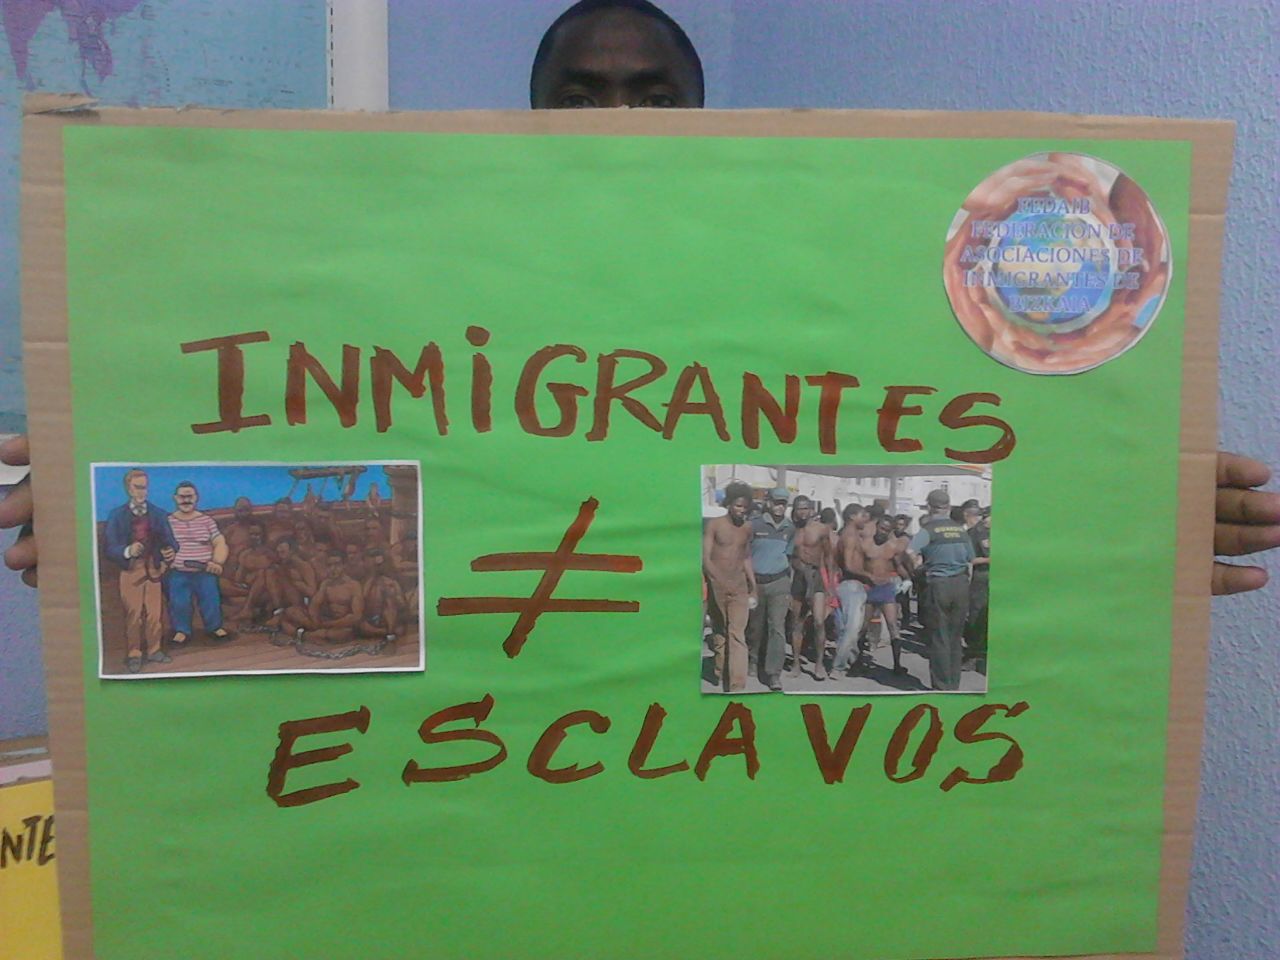 FEDAIB
FEDERACION DE
ASOCIACIONES DE
INMIGRANTES DE
BIZKAIA
INMiGRANTES
≠
GUARDIA
CIVIL
ESCLAVOS
NTE